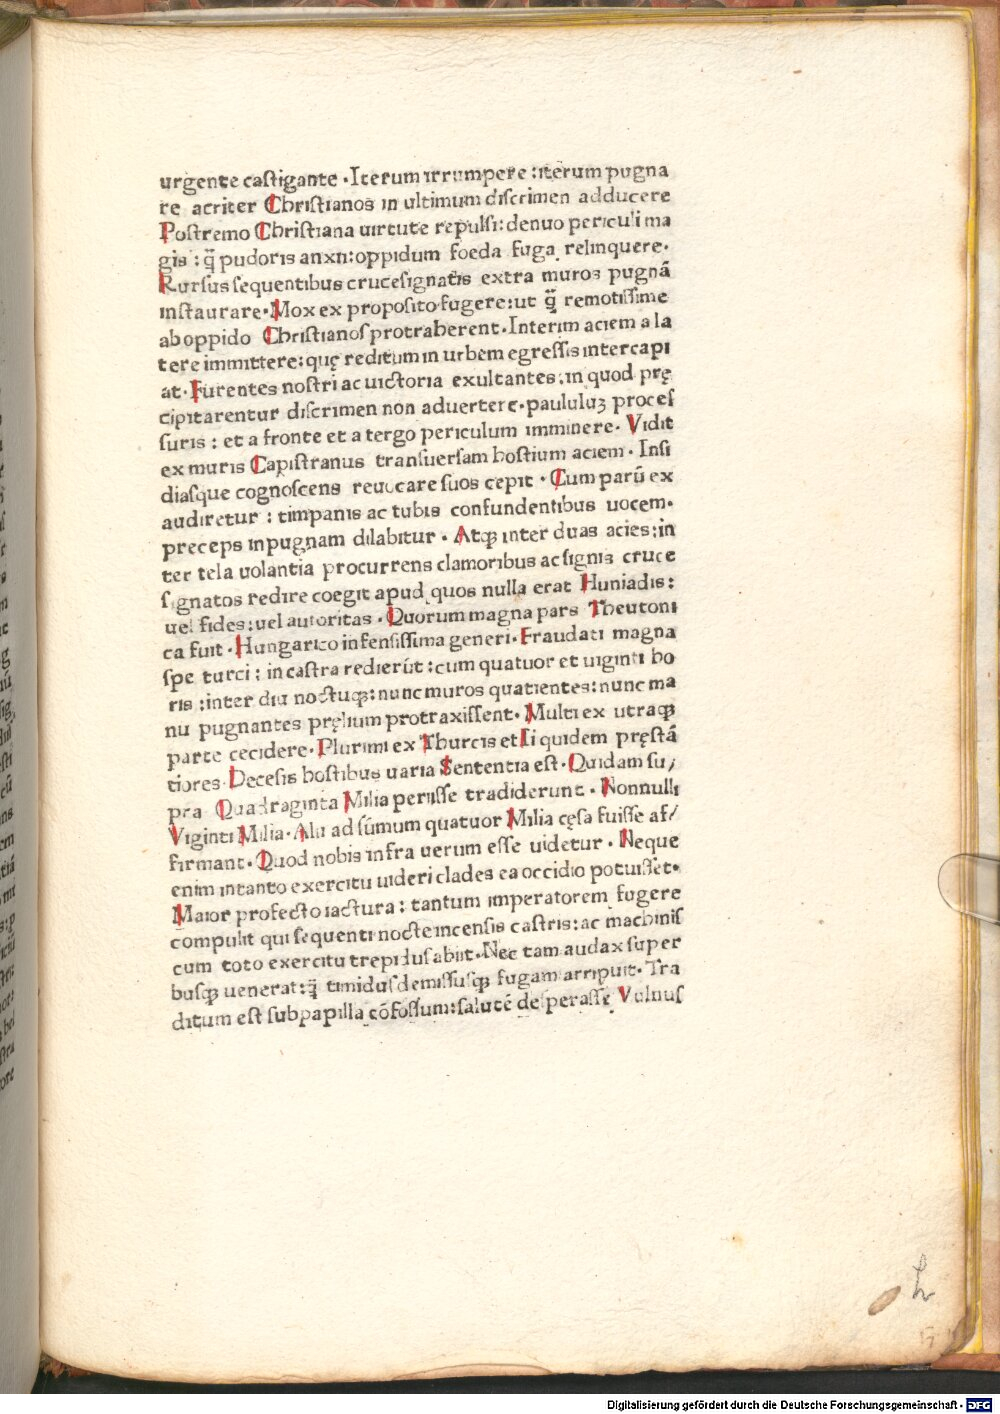 urgente caſtigante · Iterum irrumpere : iterum pugna
re acriter Chriſtianos in ultimum diſcrimen adducere
Poſtremo Chriſtiana uirtute repulſi : denuo periculi ma
gis : q̃ pudoris anxii : oppidum foeda fuga relinquere ·
Rurſus ſequentibus cruceſignatis extra muros pugnā
inſtaurare · Mox ex propoſito fugere : ut q̃ remotiſſime
ab oppido Chriſtianoſ protraherent · Interim aciem a la
tere immittere : quę reditum in urbem egreſſis intercapi
at · Furentes noſtri ac uictoria exultantes : in quod prę
cipitarentur diſcrimen non aduertere · paululuꝫ proceſ
ſuris : et a fronte et a tergo periculum imminere · Vidit
ex muris Capiſtranus tranſuerſam hoſtium aciem · Inſi
diaſque cognoſcens reuocare ſuos cepit · Cum parū ex
audiretur : timpanis ac tubis confundentibus uocem ·
preceps in pugnam dilabitur · Atqꝫ inter duas acies : in
ter tela uolantia procurrens clamoribus ac ſignis cruce
ſignatos redire coegit apud quos nulla erat Huniadis :
uel fides : uel autoritas · Quorum magna pars Theutoni
ca fuit · Hungarico infenſiſſima generi · Fraudati magna
ſpe turci : in caſtra redierūt : cum quatuor et uiginti ho
ris : inter diu noctuqꝫ : nunc muros quatientes : nunc ma
nu pugnantes pręlium protraxiſſent · Multi ex utraqꝫ
parte cecidere · Plurimi ex Thurcis et Ii quidem pręſtā
tiores · De ceſis hoſtibus uaria Sententia eſt · Quidam ſu/
pra Quadraginta Milia periiſſe tradiderunt · Nonnulli
Viginti Milia · Alii ad ſūmum quatuor Milia cęſa fuiſſe af/
firmant · Quod nobis infra uerum eſſe uidetur · Neque
enim in tanto exercitu uideri clades ea occidio potuiſſet ·
Maior profecto iactura : tantum imperatorem fugere
compulit qui ſequenti nocte incenſis caſtris : ac machiniſ
cum toto exercitu trepiduſ abiit · Nec tam audax ſuper
buſqꝫ uenerat : q̃ timiduſ demiſſuſqꝫ fugam arripuit · Tra
ditum eſt ſub papilla cōfoſſum : ſalutē deſperaſſe Vulnuſ
Digitalisierung gefördert durch die Deutsche Forschungsgemeinschaft - DFG